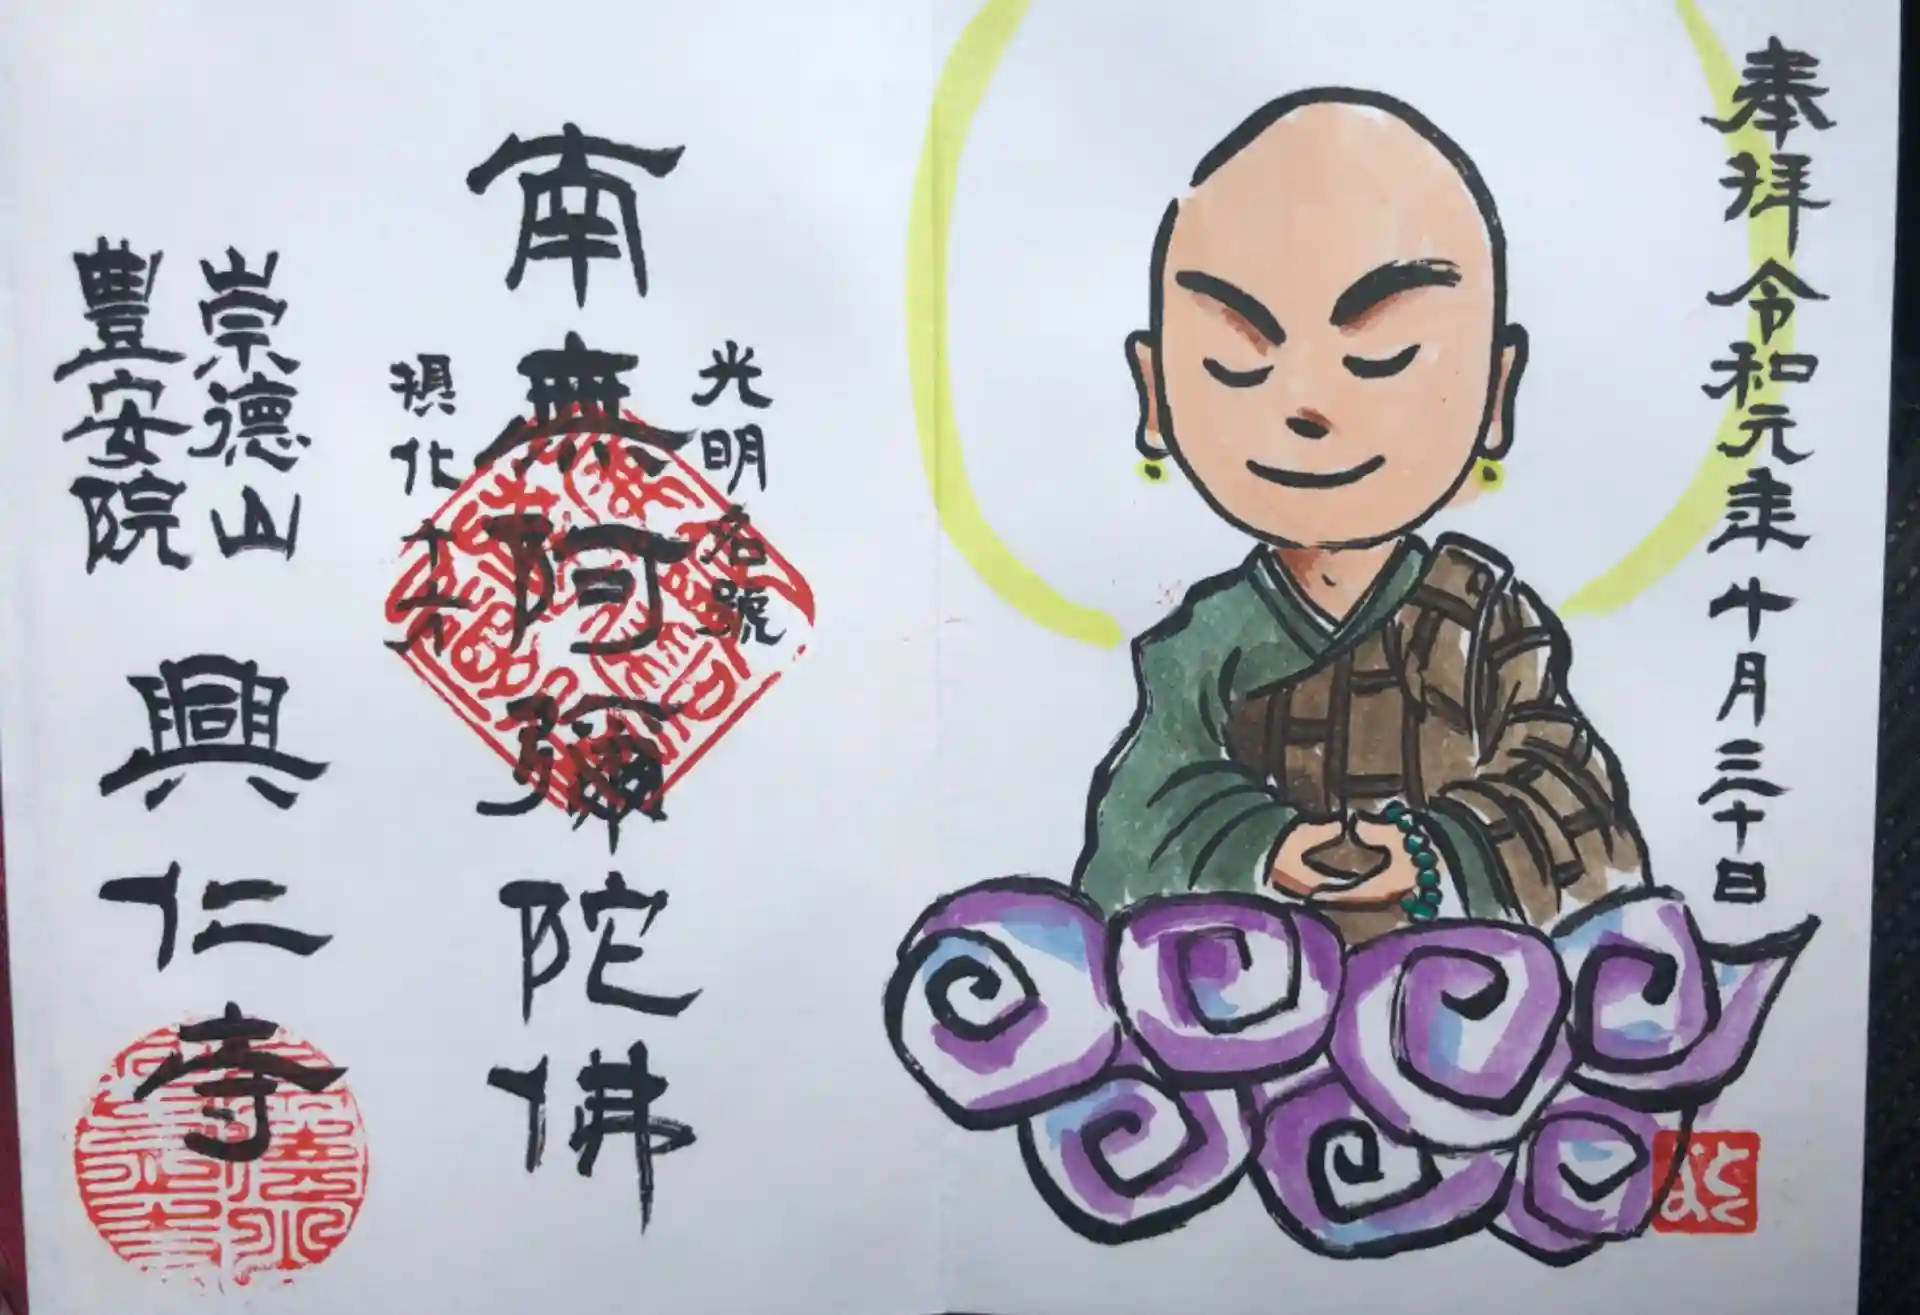 奉拜令和元年十月三十日
光明名號
南無阿彌陀佛
摂化十方
崇德山
豊安院
興仁寺